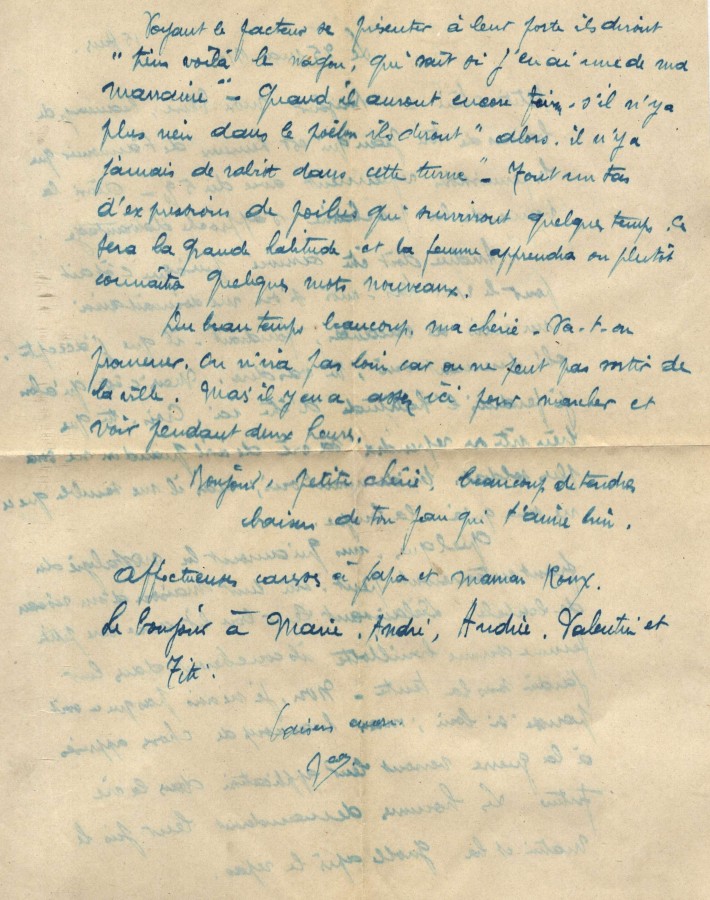 Voyant le facteur se présenter à leur porte ils diront
"tiens voilà le vagou, qui sait si j'en ai une de ma
marraine" - Quand il auront encore faim, s'il n'y a
plus rien dans le poëlon ils diront "alors, il n'y a
jamais de rabiot dans cette turne" - Tout un tas
d'expressions de poilus qui survivront quelques temps. Ce
sera la grande habitude, et la femme apprendra ou plutôt
connaîtra quelques mots nouveaux.
Du beau temps beaucoup, ma chérie - Va-t-on
promener. On n'ira pas loin car on ne peut pas sortir de
la ville. Mais il y en a assez ici pour marcher et
voir pendant deux heures.
Bonjour, petite chérie, beaucoup de tendres
baisers de ton Jean qui t'aime bien.
Affectueuses caresses à papa et maman Roux.
Le bonjour à Marie, André, Andrée, Valentin et
Titi.
baisers encore
Jean